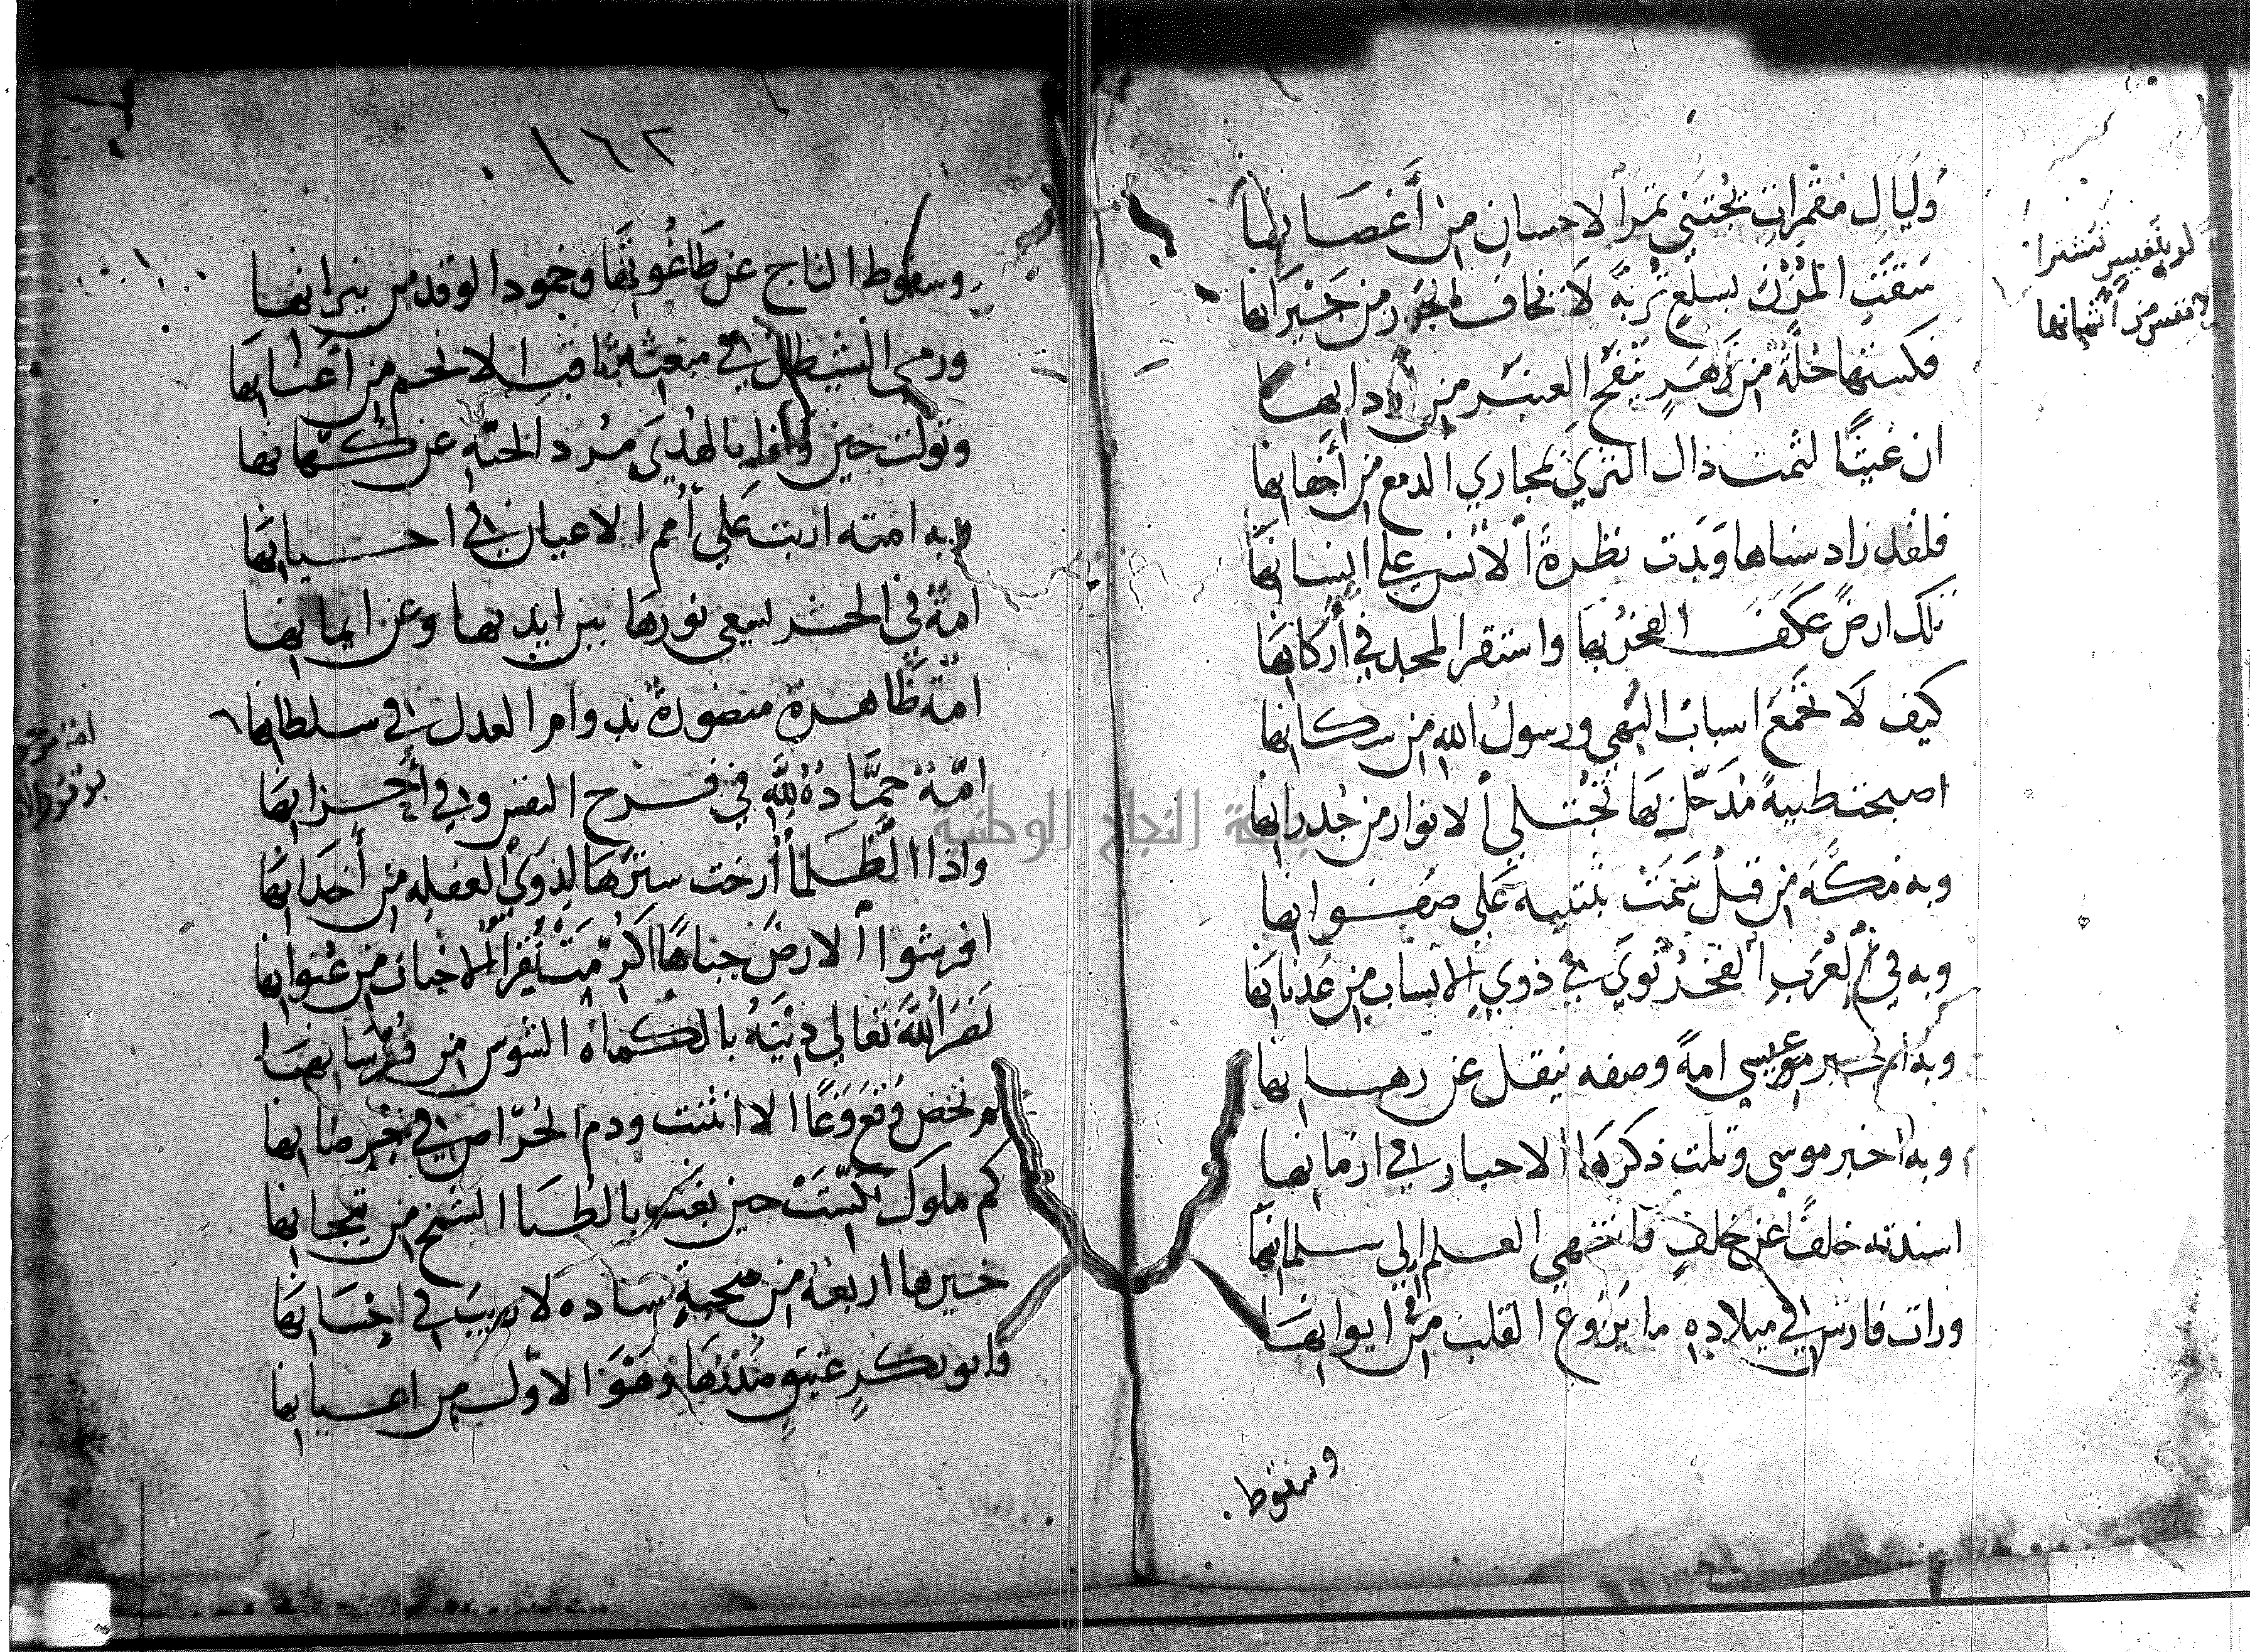 وَلَيَالٍ مُقْمِرَاتٍ تُجْتَنى ثمر الاحسان من أَغصَانها
سَقَتِ المُزْنَ بسلع تُرْبَةً لا تخاف الجَوْر من جيرانها
فكستها حُلَّةً من زهرٍ ينفح العنبر من اردانها
ان عَيْنًا لثمت ذاك الثري بمجاري الدمع من أجفانها
فلقد زاد سناها وَبَدَت نظرة الأنس علي انسانها
تلك ارضٌ عَكَفَ الفخرُ بها واستقر المجد في أركانها
كيف لا تجمع اسباب البهى ورسول الله من سكانها
اصبحت طيبة مُذ حَلَّ بها تُجْتلي الانوار من جُدرانها
وبه مكة من قبل سَمَتْ بثنية عَلَي صفوانها
وبه في العُرْبِ الفخرُ ثوي في ذوي الانساب من عَدنانها
وبه عيسي امةً وصفه ينقل عن رهبانها
وبه أخبر موسى وتلت ذكرها الاحبار في ازمانها
اسندته خلفًا عن خلفٍ وانتهي العلم الي سلمانها
ورات فارس في ميلاده ما يَرُوع القلب من ايوانها
وسقوط.
لو بنفيس تشترا
من أثمانها
١٦٢
وسقوط التاج عن طَاغُوتها وخمود الوقد من نيرانها
ورمي الشيطان في مبعثه ثاقب الانجم من أعنانها
وتولت حين وافا بالهُدَي مُرد الجنّه عن كُهّانها
وبه امته اربت علي أمم الاعيان في احسانها
امةٌ في الحشر يسعي نورها بين ايديها وعن ايمانها
امةٌ ظاهرةٌ منصورةٌ بدوام العدل في سلطانها
امّة حمّادةٌ لله في فرح النفس وفي أحزانها
واذا الظلما أرخت سترها لذوي الغفله من أخدانها
افرشوا الارض جباها اكرمت تقرا الاخبات من عُنوانها
نَصَرَ الله تعالي دينه بالكُماة الشوس من فُرسانها
لم تخض وَقع وَغًا الا انثنت ودم الحُرّاص في خِرصانها
كم ملوك نُكّسَت حين بغت بالظُبَا الشمخ من تيجانها
خيرها اربعة من صحبهِ ساده لا ريبَ في احْسَانها
فابو بكرٍ عتيق منذرها وهو الاوّل من اعيانها